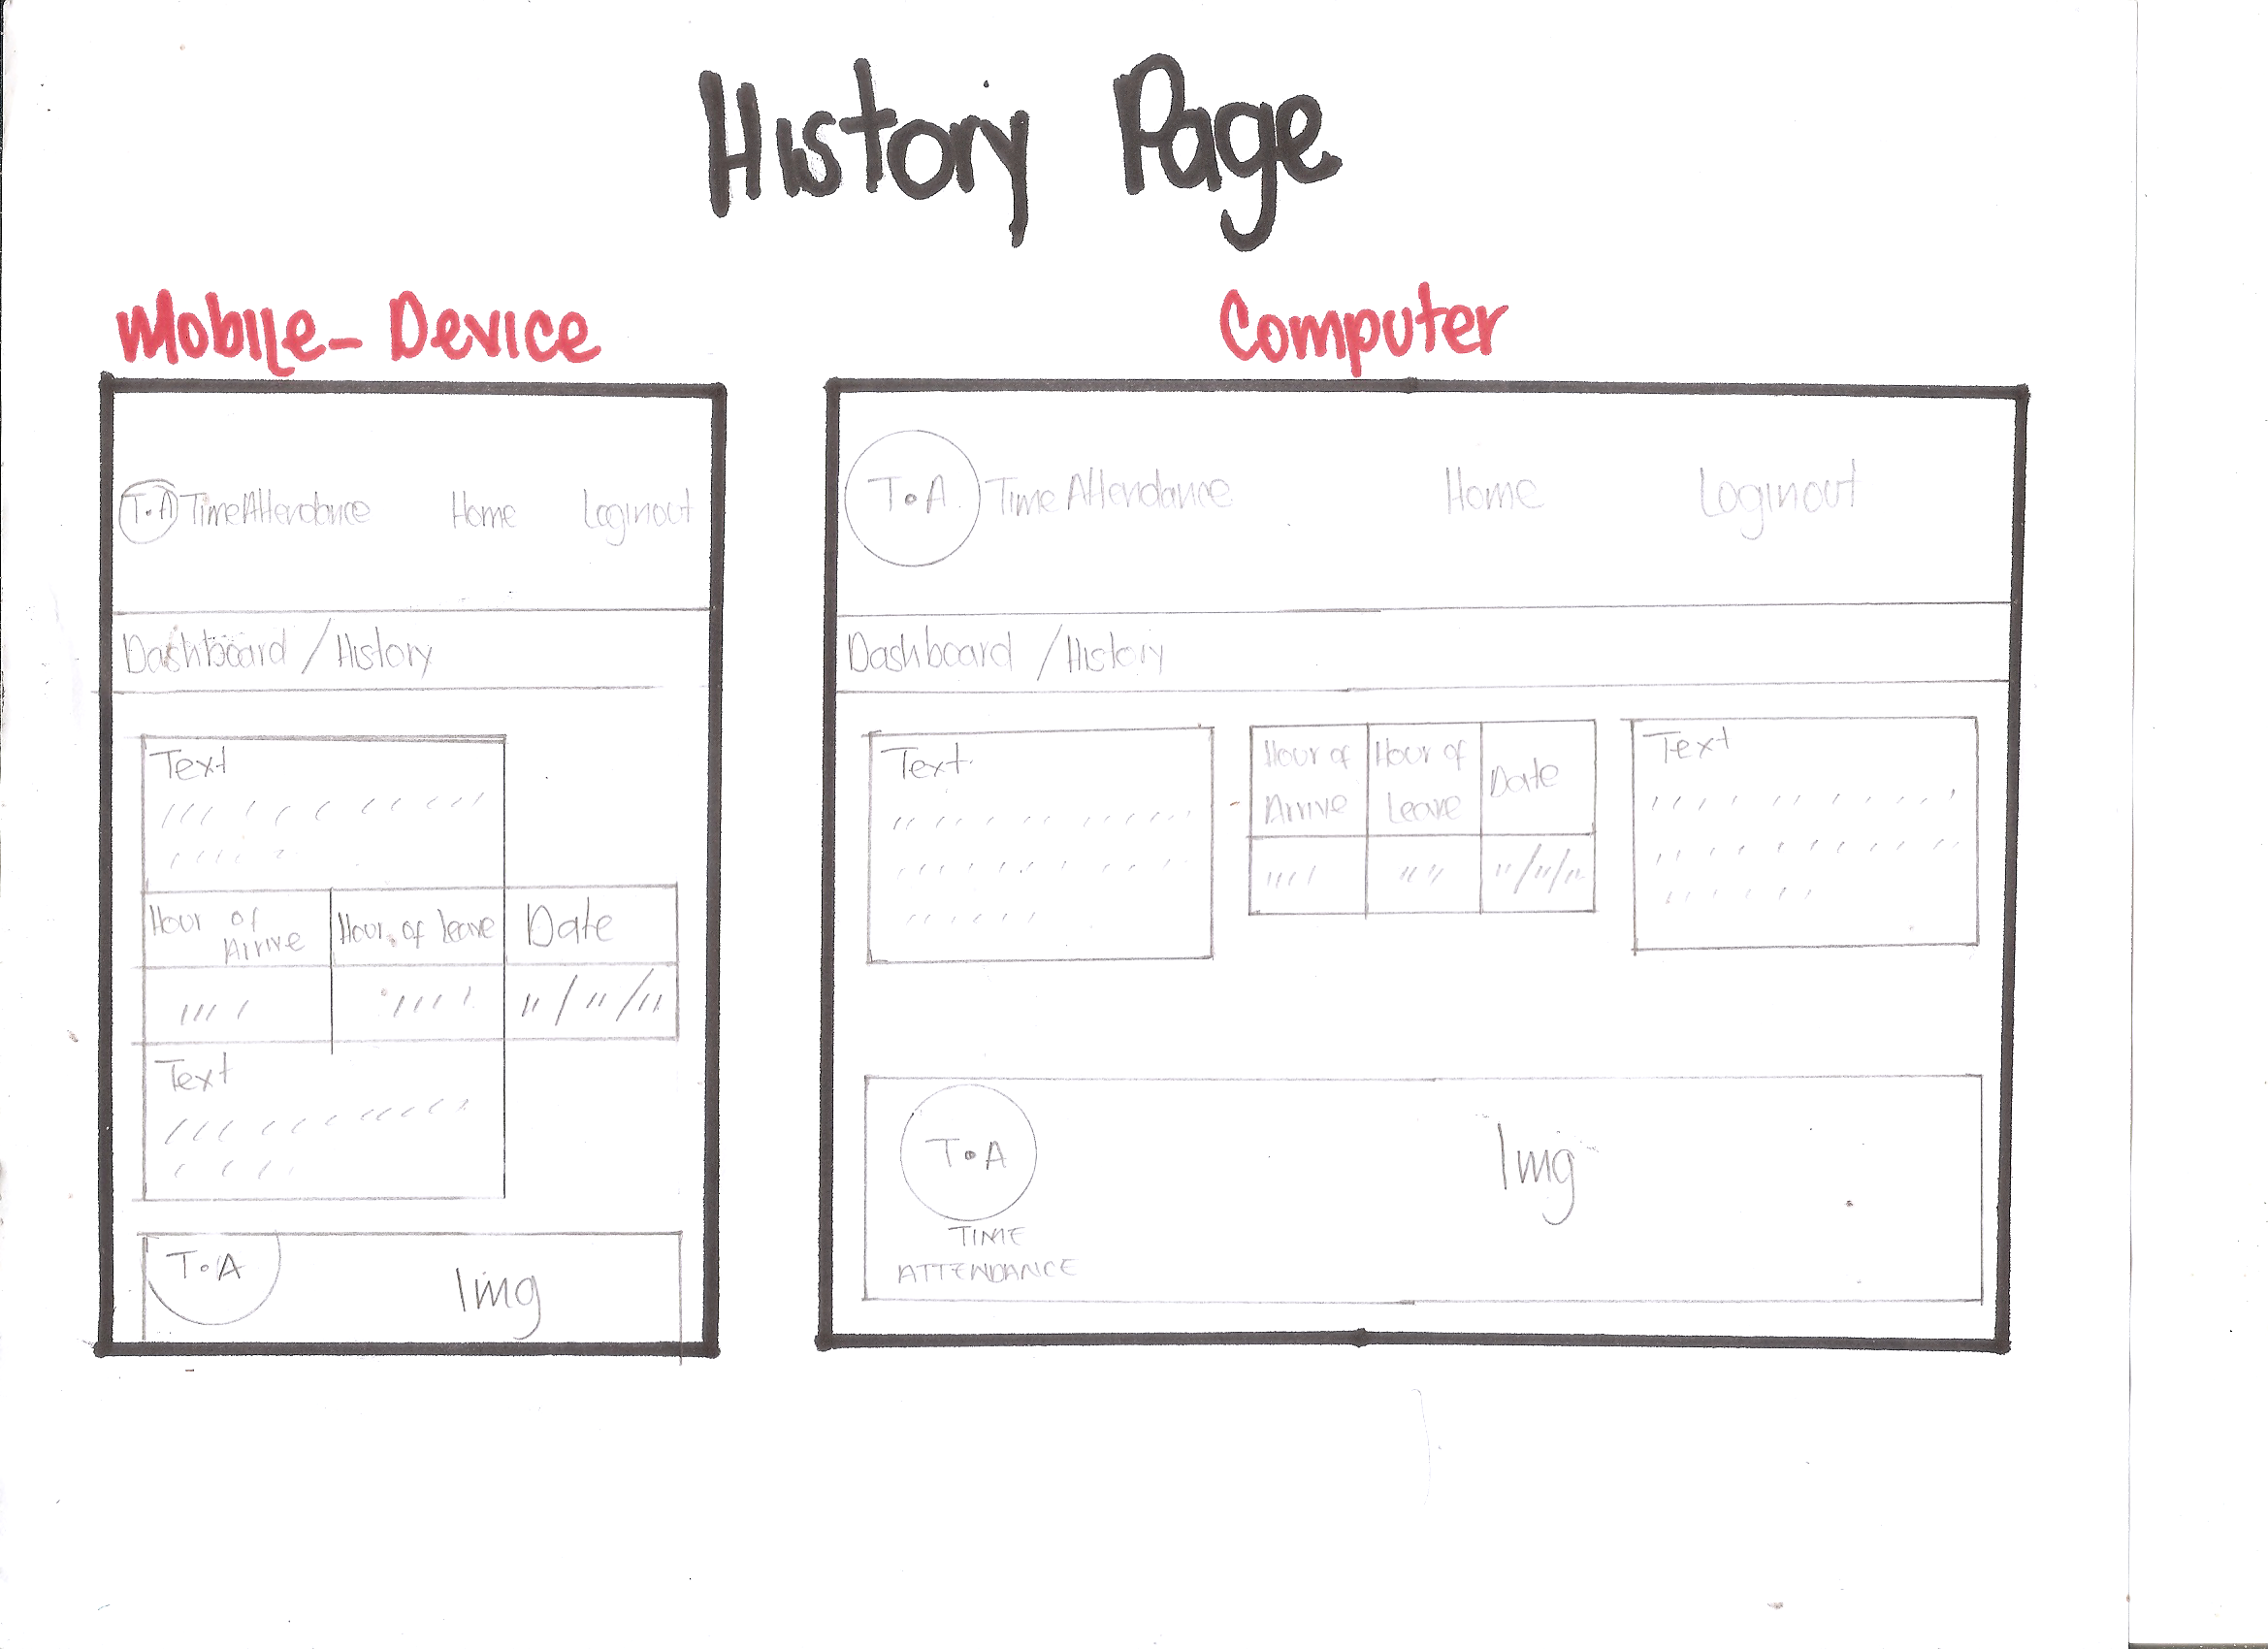 History Page
Mobile-Device
T.A TimeAttendance Home Loginout
Dashboard / History
Text
Hour of Arrive
Hour of leave
Date
Text
T.A
Img
Computer
T.A TimeAttendance Home Loginout
Dashboard / History
Text
Hour of
Arrive
Hour of
Leave
Date
Text
T.A
TIME
ATTENDANCE
Img